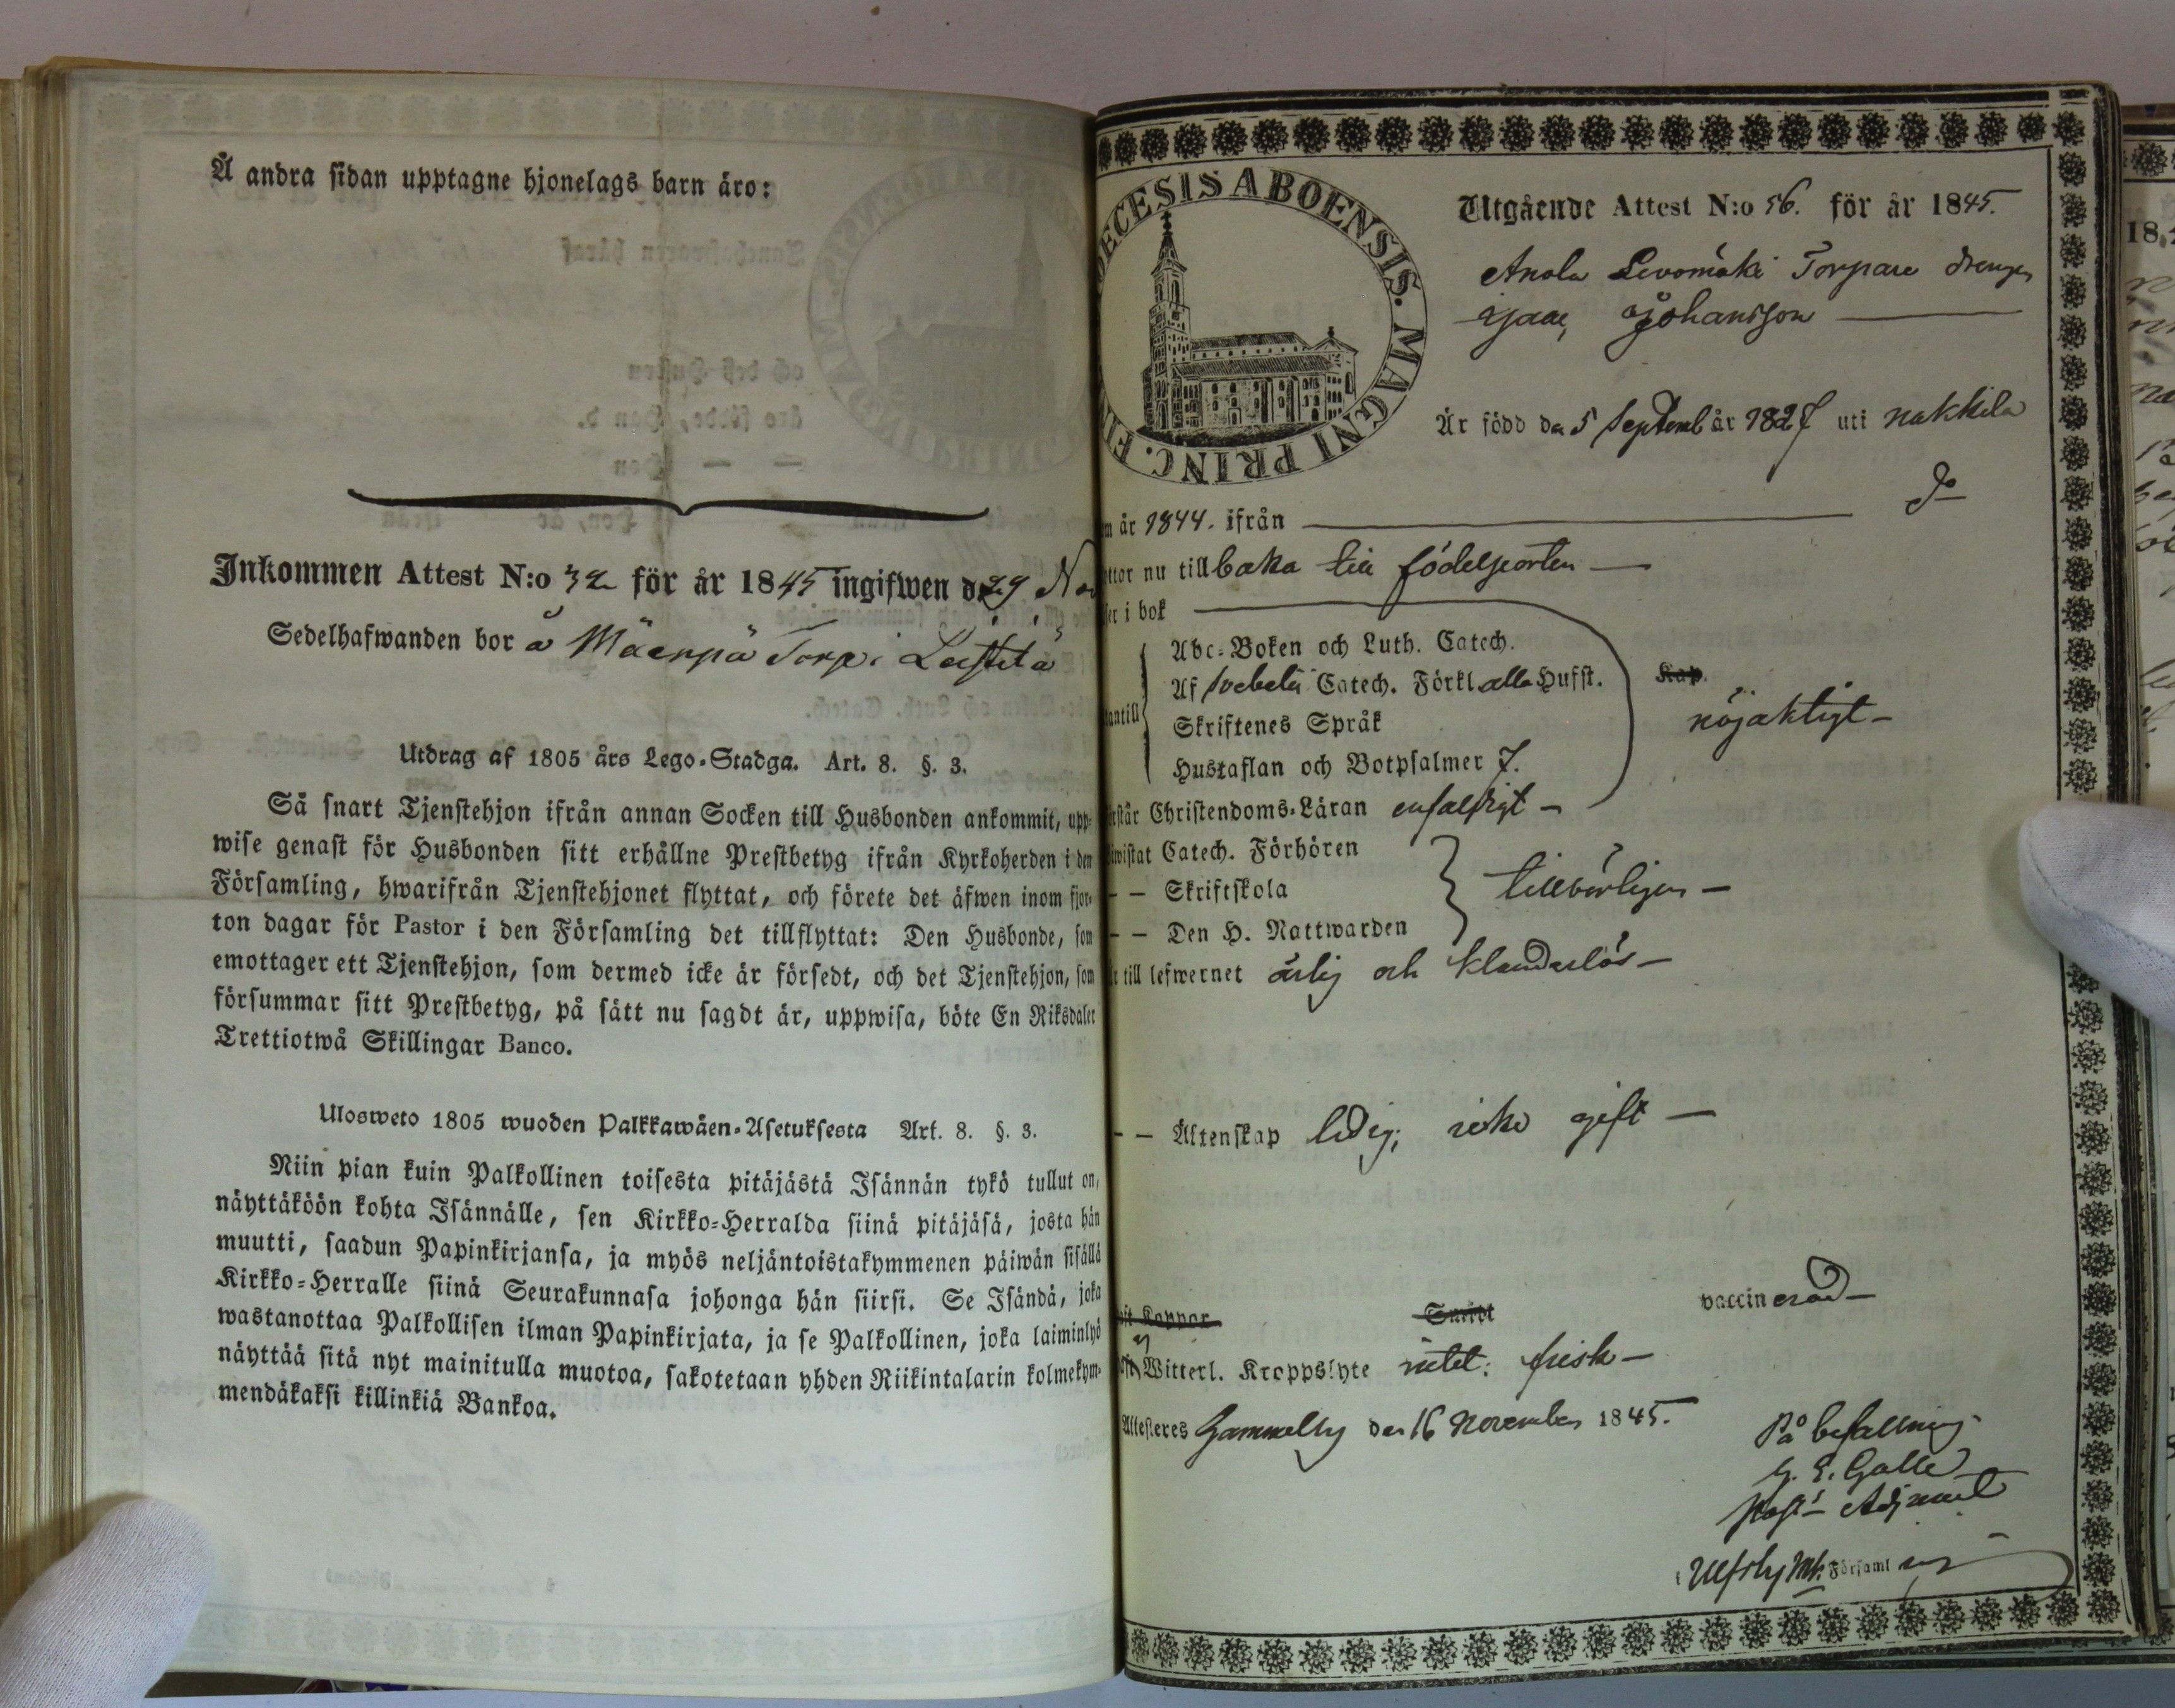 Å andra sidan upptagne hjonelags barn äro:
Inkommen Attest N:o 32 för år 1845 ingifwen d. 29 Nov
Sedelhafwanden bor å Mäenpä Torp i Leistilä
Utdrag af 1805 års Lego-Stadga. Art. 8. §. 3.
Så snart Tjenstehjon ifrån annan Socken till Husbonden ankommit, upp-
wise genast för Husbonden sitt erhållne Prestbetyg ifrån Kyrkoherden i den
Församling, hwarifrån Tjenstehjonet flyttat, och förete det äfwen inom fjor-
ton dagar för Pastor i den Församling det tillflyttat: Den Husbonde, som
emottager ett Tjenstehjon, som dermed icke är försedt, och det Tjenstehjon, som
försummar sitt Prestbetyg, på sätt nu sagdt är, uppwisa, böte En Riksdaler
Trettiotwå Skillingar Banco.
Ulosweto 1805 wuoden Palkkawäen-Asetuksesta Art. 8. §. 3.
Niin pian kuin Palkollinen toisesta pitäjästä Isännän tykö tullut on,
näyttäköön kohta Isännälle, sen Kirkko-Herralda siinä pitäjäsä, josta hän
muutti, saadun Papinkirjansa, ja myös neljäntoistakymmenen päiwän sisällä
Kirkko-Herralle siinä Seurakunnasa johonga hän siirsi. Se Isändä, joka
wastanottaa Palkollisen ilman Papinkirjata, ja se Palkollinen, joka laiminlyö
näyttää sitä nyt mainitulla muotoa, sakotetaan yhden Riikintalarin kolmekym-
mendäkaksi killinkiä Bankoa.
ECESIS ABOENSIS. MAGNI PRINC. FI
Utgående Attest N:o 56. för år 1845.
Anola Levomäki Torpare drengen
Isaac Johansson
Är född den 5 Septemb år 1827 uti Nakkila
m år 1844. ifrån do
ttor nu tillbaka till födelseorten
ser i bok
Abc-Boken och Luth. Catech.
Af Svebelii Catech. Förkl. alla Hufst. Kap.
antill
Skriftenes Språk nöjaktigt
Hustaflan och Botpsalmer 7.
rstår Christendoms-Läran enfaldigt
iwistat Catech. Förhören
– – Skriftskola tillbörligen
– – Den H. Nattwarden
till lefwernet ärlig och klanderlös
– – Äktenskap ledig, icke gift
Koppor Smittet vaccinerad
Witterl. Kroppslyte intet: frisk
Attesteres Gammelby den 16 November 1845.
På befallning
G. E. Galle
Past. Adjunct
i Ulfsby Mk. Församling